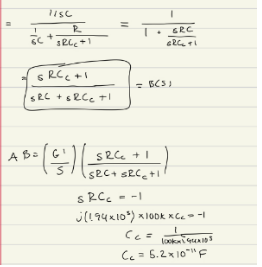 = 1/sC / (1/sC + R/(sRCc+1)) = 1 / (1 + sRC/(sRCc+1))
= (sRCc+1) / (sRC + sRCc+1) = B(s)
AB = (G'/s) ((sRCc+1) / (sRC+sRCc+1))
sRCc = -1
j(1.94x10⁵) x100k xCc = -1
Cc = 1 / (100k x 1.94x10⁵)
Cc = 5.2x10⁻¹¹ F